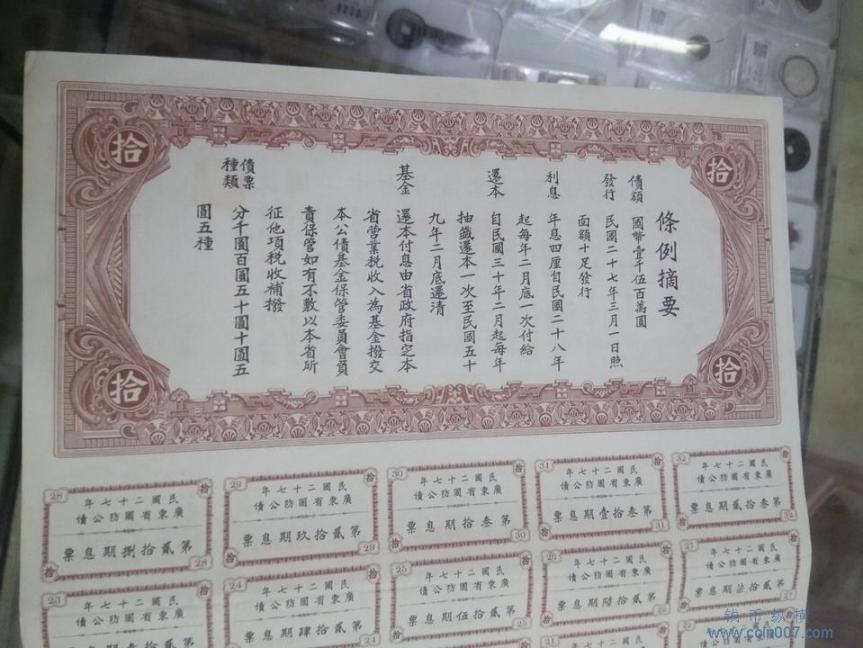 拾
拾
拾
拾
條例摘要
債額 國幣壹千伍百萬圓
發行 民國二十七年三月一日照
面額十足發行
利息 年息四厘自民國二十八年
起每年二月底一次付給
還本 自民國三十年二月起每年
抽籤還本一次至民國五十
九年二月底還清
基金 還本付息由省政府指定本
省營業稅收入為基金撥交
本公債基金保管委員會負
責保管如有不敷以本省所
征他項稅收補撥
債票種類 分千圓百圓五十圓十圓五
圓五種
32 拾
民國二十七年
廣東省國防公債
第叁拾貳期息票
32
31 拾
民國二十七年
廣東省國防公債
第叁拾壹期息票
拾 31
30 拾
民國二十七年
廣東省國防公債
第叁拾期息票
拾 30
29 拾
民國二十七年
廣東省國防公債
第貳拾玖期息票
拾 29
28 拾
民國二十七年
廣東省國防公債
第貳拾捌期息票
拾 28
27
民國二十七年
廣東省國防公債
第貳拾柒期息票
27
26 拾
民國二十七年
廣東省國防公債
第貳拾陸期息票
26
25 拾
民國二十七年
廣東省國防公債
第貳拾伍期息票
25
24 拾
民國二十七年
廣東省國防公債
第貳拾肆期息票
24
23 拾
民國二十七年
廣東省國防公債
第貳拾叁期息票
21
錢幣縱橫
www.coin007.com